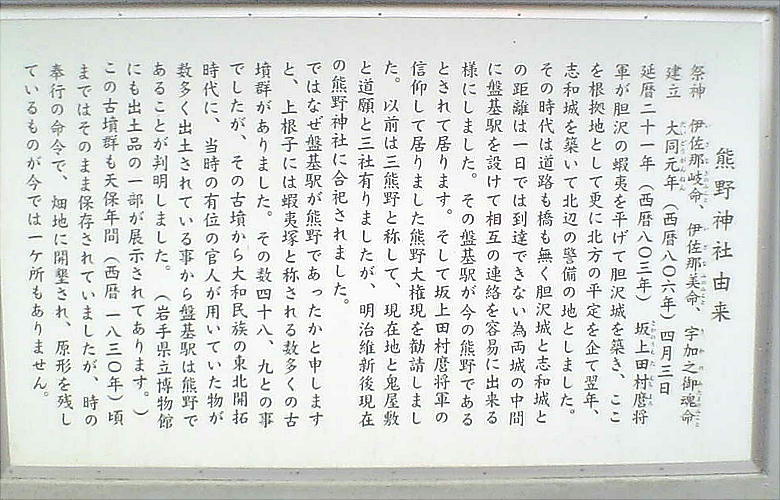 熊野神社由来
祭神　伊佐那岐命、伊佐那美命、宇加之御魂命
建立　大同元年（西暦八〇六年）四月三日
延暦二十一年（西暦八〇三年）　坂上田村麿将
軍が胆沢の蝦夷を平げて胆沢城を築き、ここ
を根拠地として更に北方の平定を企て翌年、
志和城を築いて北辺の警備の地としました。
その時代は道路も橋も無く胆沢城と志和城と
の距離は一日では到達できない為両城の中間
に盤基駅を設けて相互の連絡を容易に出来る
様にしました。その盤基駅が今の熊野である
とされて居ります。そして坂上田村麿将軍の
信仰して居りました熊野大権現を勧請しまし
た。以前は三熊野と称して、現在地と鬼屋敷
と道願と三社有りましたが、明治維新後現在
の熊野神社に合祀されました。
ではなぜ盤基駅が熊野であったかと申します
と、上根子には蝦夷塚と称される数多くの古
墳群がありました。その数四十八、九との事
でしたが、その古墳から大和民族の東北開拓
時代に、当時の有位の官人が用いていた物が
数多く出土されている事から盤基駅は熊野で
あることが判明しました。（岩手県立博物館
にも出土品の一部が展示されてあります。）
この古墳群も天保年間（西暦一八三〇年）頃
まではそのまま保存されていましたが、時の
奉行の命令で、畑地に開墾され、原形を残し
ているものが今では一ケ所もありません。